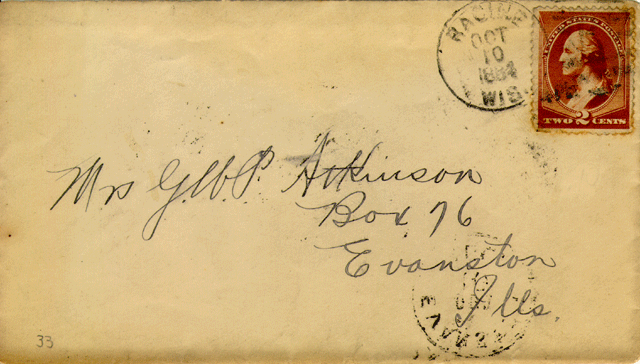 RACINE
OCT
10
1884
WIS.
UNITED STATES POSTAGE
TWO 2 CENTS
Mrs G.W.P. Atkinson
Box 76
Evanston
Ills.
33